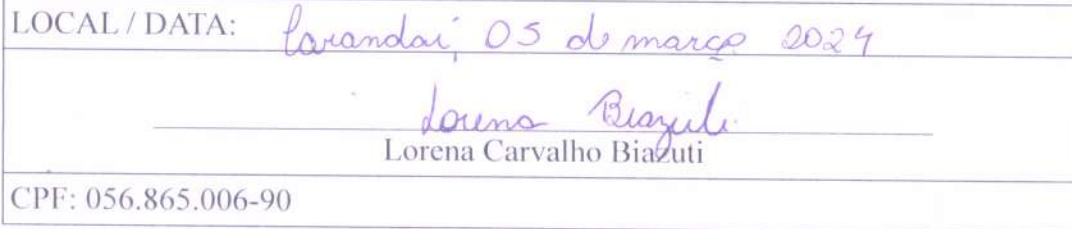 LOCAL / DATA: Carandaí, 05 de março 2024
Lorena Biazuti
Lorena Carvalho Biazuti
CPF: 056.865.006-90